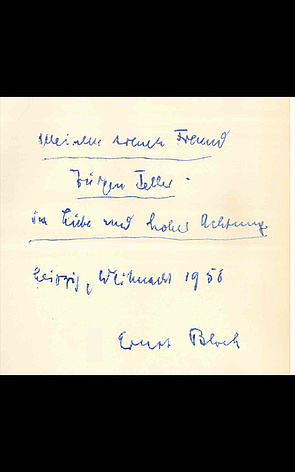 Meinem treuen Freund
Jürgen Teller
in Liebe und hoher Achtung
Leipzig, Weihnacht 1956
Ernst Bloch